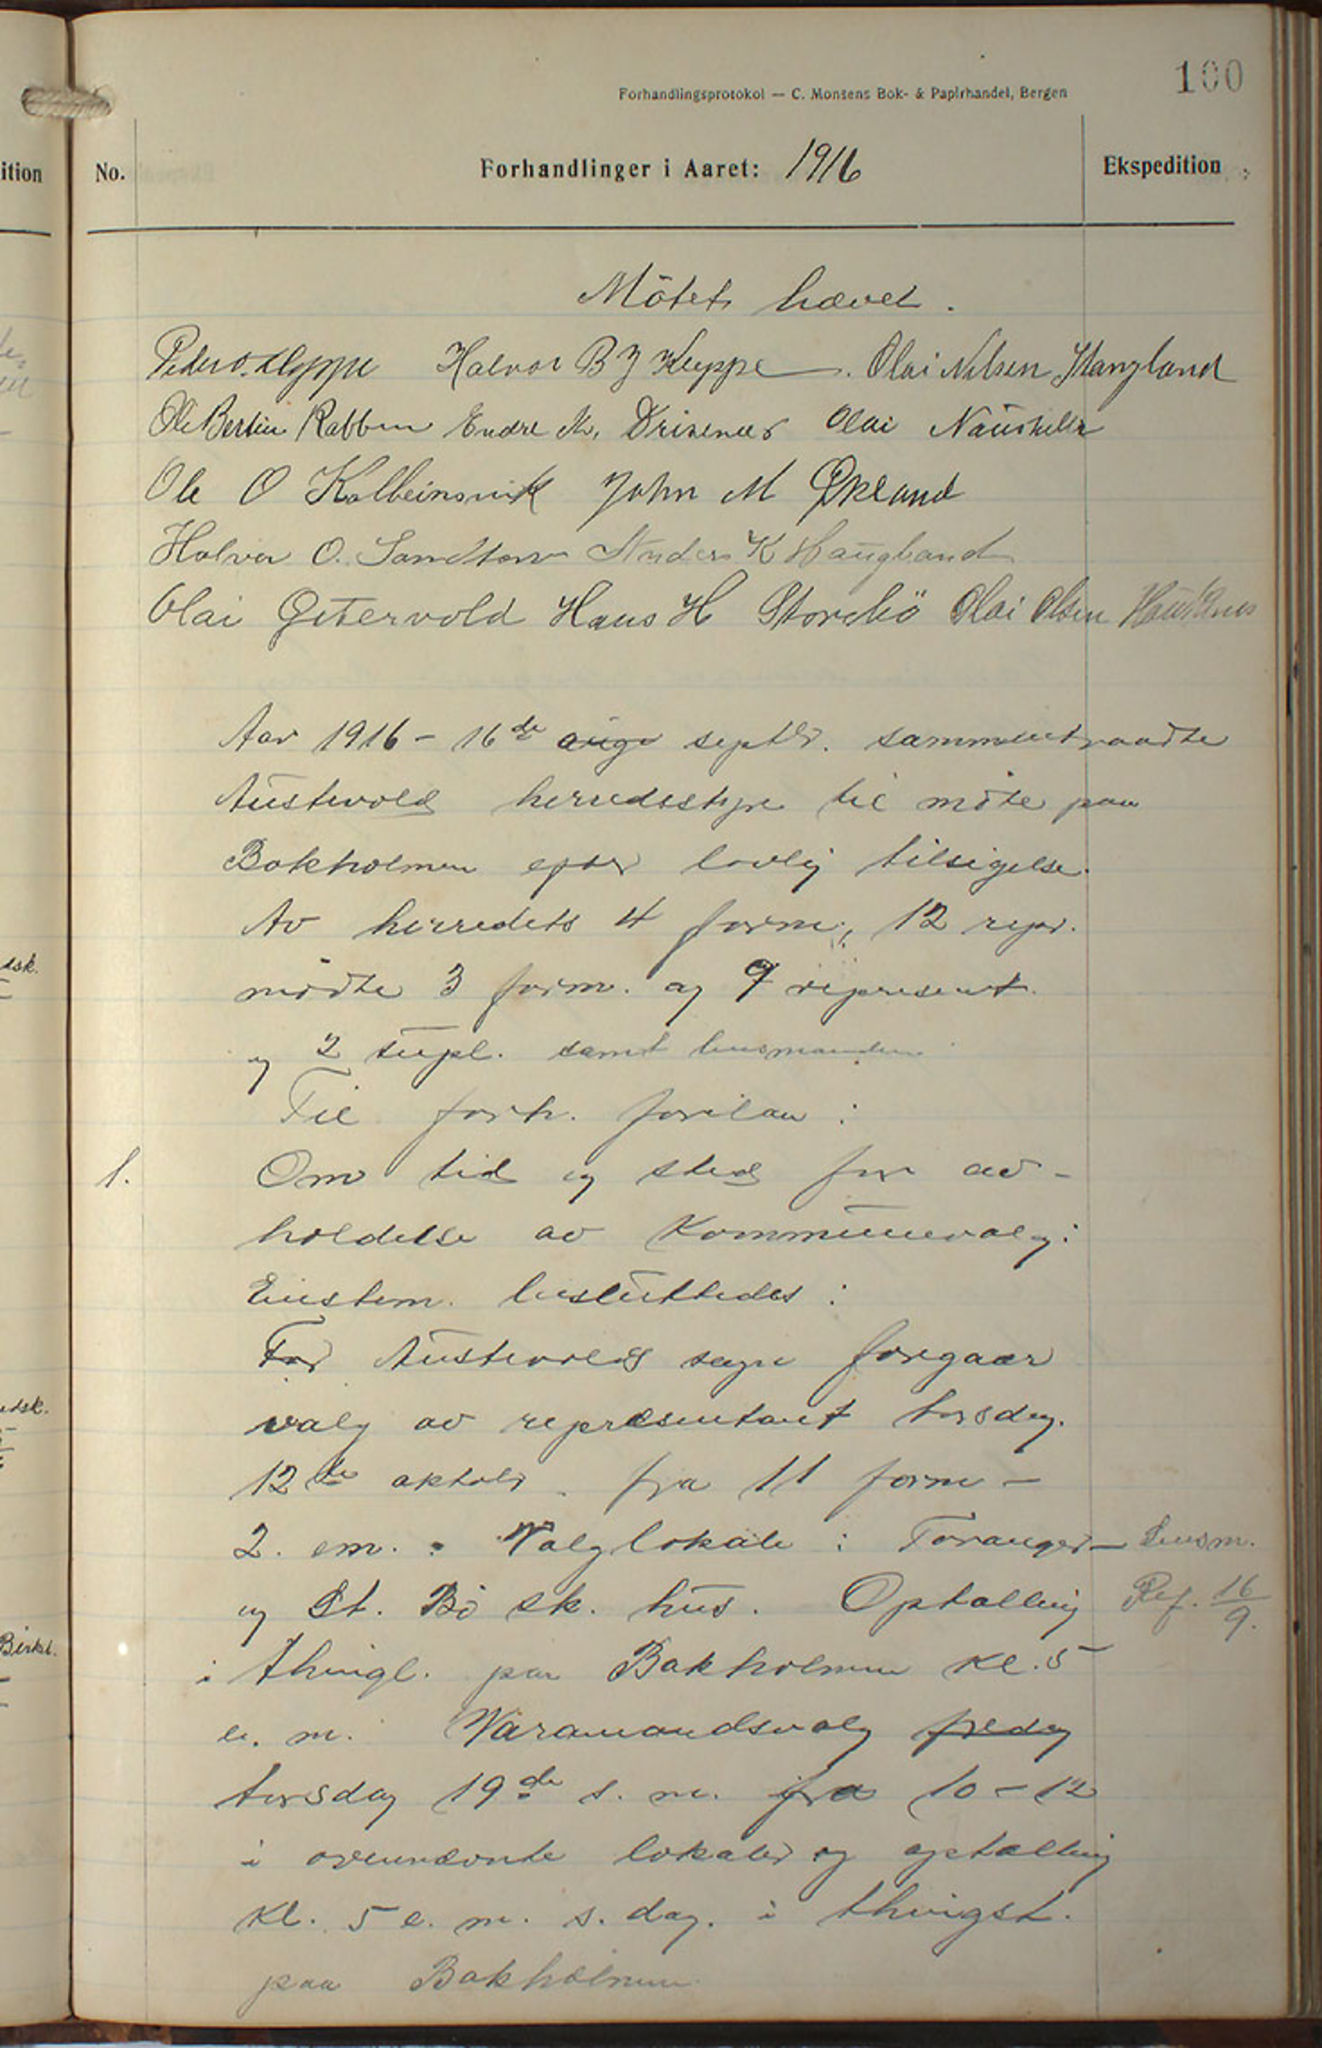 100
Forhandlingsprotokol — C. Monsens Bok- & Papirhandel, Bergen
ition No. Forhandlinger i Aaret: 1916 Ekspedition
Mötet hævet.
Peder O. Kleppe Halvor B J Kleppe. Olai Nilsen Stangland
Ole Bertin Rabben Endre M. Drivenes Olai Naustheller
Ole O Kolbeinsvik John M Økland
Halvor O. Sandtorv Anders K Haugland
Olai Østervold Hans H Storebö Olai Olsen Haukanes
Aar 1916 - 16de septbr. sammentraadte
Austevold herredsstyre til møte paa
Bakholmen efter lovlig tilsigelse.
Av herredets 4 form., 12 repr.
mødte 3 form. og 9 represent.
og 2 supl. samt lensmanden.
Til forh. forelaa:
1. Om tid og sted for av-
holdelse av Kommunevalg:
Enstem. besluttedes:
For Austevold sogn foregaar
valg av repræsentant torsdag.
12te oktobr. fra 11 form -
2. em. Valglokale: Toranger- Lensm.
og St. Bö sk. hus. Optælling Ref. 16/9.
i thingl. paa Bakholmen Kl. 5
e. m. Varamandsvalg fredag
torsdag 19de s. m. fra 10-12
i ovennævnte lokaler og optælling
Kl. 5 e. m. s. dag. i thingst.
paa Bakholmen
dsk.
edsk.
Birkel.